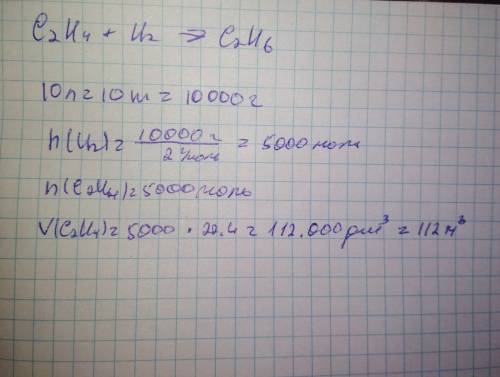 C₂H₄ + H₂ → C₂H₆
10л = 10 т = 10000 г
n(H₂) = 10000 г / 2 г/моль = 5000 моль
n(C₂H₄) = 5000 моль
V(C₂H₄) = 5000 · 22.4 = 112.000 дм³ = 112 м³